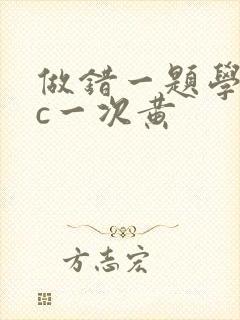 做錯一題學
c一次黃
方志宏